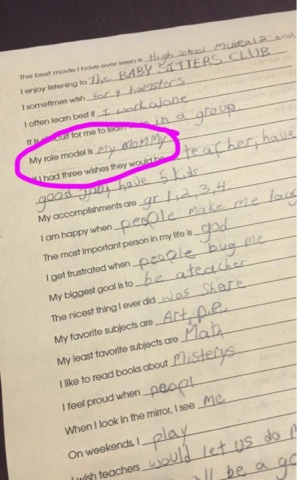 The best movie I have ever seen is High School Musical 2 and
I enjoy listening to The BABY SITTERS CLUB
I sometimes wish for 4 hamsters
I often learn best if I work alone
It is for me to learn in a group
My role model is My MOMMY
If I had three wishes they would be teacher, have
good have 5 kids
My accomplishments are gr. 1, 2, 3, 4
I am happy when people make me laug
The most important person in my life is god
I get frustrated when people bug me
My biggest goal is to be a teacher
The nicest thing I ever did was share
My favorite subjects are Art, p.e.
My least favorite subjects are Math
I like to read books about Misterys
I feel proud when peopl
When I look in the mirror, I see me
On weekends, I play
I wish teachers would let us do
be a